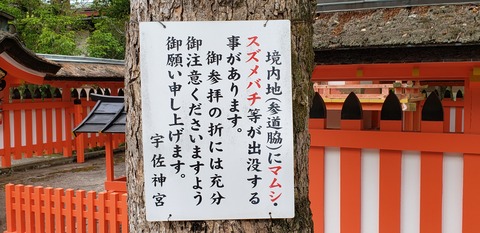 境内地(参道脇)にマムシ・
スズメバチ等が出没する
事があります。
御参拝の折には充分
御注意くださいますよう
御願い申し上げます。
宇佐神宮